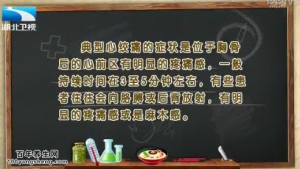 湖北卫视
典型心绞痛的症状是位于胸骨
后的心前区有明显的疼痛感，一般
持续时间在3至5分钟左右，有些患
者往往会向胳膊或后背放射，有明
显的疼痛感或是麻木感。
百年养生网